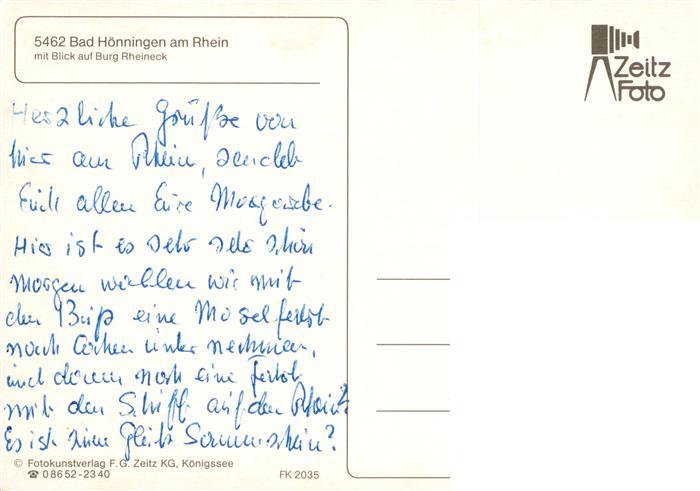 5462 Bad Hönningen am Rhein
mit Blick auf Burg Rheineck
Zeitz
Foto
Herzliche Grüße von
hier am Rhein, sendet
Euch allen Eure
Hier ist es sehr sehr schön
morgen wir mit
den eine Moselfahrt
nach Cochem unternehmen,
und dann noch eine Fahrt
mit den Schiff auf den Rhein?
Es ist zum Glück Sonnenschein?
© Fotokunstverlag F. G. Zeitz KG, Königssee
☎ 08652-2340
FK 2035